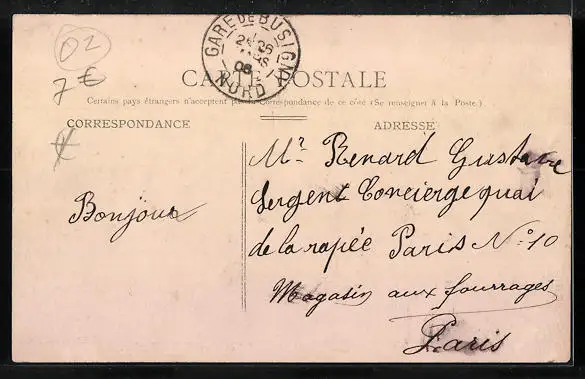 02
7 €
GARE DE BUSIGNY
NORD
08
CARTE POSTALE
Certains pays étrangers n'acceptent pas de correspondance de ce côté (Se renseigner à la Poste.)
CORRESPONDANCE
ADRESSE
Bonjour
Mr Renard Gustave
Sergent Concierge quai
de la rapée Paris No 10
Magasin aux fourrages
Paris